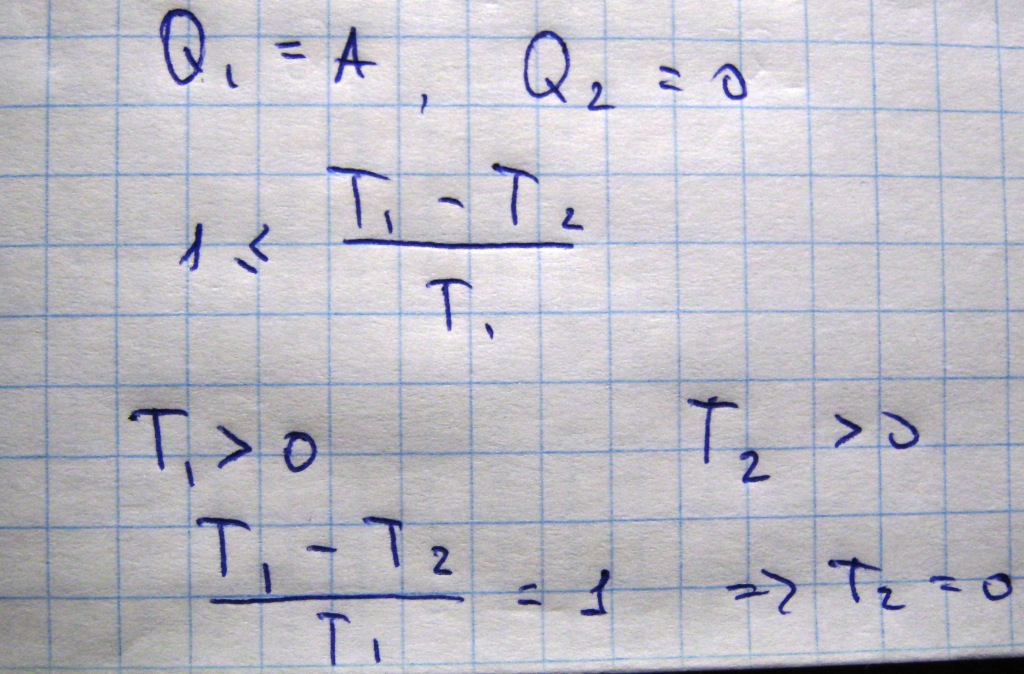 Q₁ = A, Q₂ = 0
1 ≤ (T₁ - T₂) / T₁
T₁ > 0 T₂ > 0
(T₁ - T₂) / T₁ = 1 => T₂ = 0